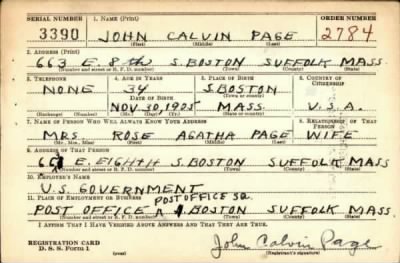 SERIAL NUMBER 1. NAME (Print) ORDER NUMBER
3390 JOHN CALVIN PAGE 2784
(First) (Middle) (Last)
2. ADDRESS (Print)
663 E. 8th S. BOSTON SUFFOLK MASS.
(Number and street or R. F. D. number) (Town) (County) (State)
3. TELEPHONE 4. AGE IN YEARS 5. PLACE OF BIRTH 6. COUNTRY OF CITIZENSHIP
NONE 34 S. BOSTON
DATE OF BIRTH (Town or county)
NOV. 30, 1905 MASS. U.S.A.
(Exchange) (Number) (Mo.) (Day) (Yr.) (State or country)
7. NAME OF PERSON WHO WILL ALWAYS KNOW YOUR ADDRESS 8. RELATIONSHIP OF THAT PERSON
MRS. ROSE AGATHA PAGE WIFE
(Mr., Mrs., Miss) (First) (Middle) (Last)
9. ADDRESS OF THAT PERSON
E. EIGHTH S. BOSTON SUFFOLK MASS
(Number and street or R. F. D. number) (Town) (County) (State)
10. EMPLOYER'S NAME
U.S. GOVERNMENT
11. PLACE OF EMPLOYMENT OR BUSINESS POST OFFICE SQ.
POST OFFICE BOSTON SUFFOLK MASS.
(Number and street or R. F. D. number) (Town) (County) (State)
I AFFIRM THAT I HAVE VERIFIED ABOVE ANSWERS AND THAT THEY ARE TRUE.
REGISTRATION CARD
D. S. S. Form 1 (over) John Calvin Page
(Registrant's signature)